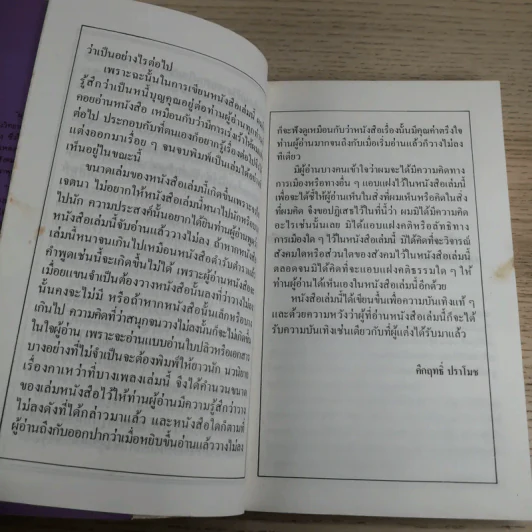 ว่าเป็นอย่างไรต่อไป
เพราะฉะนั้นในการเขียนหนังสือเล่มนี้
รู้สึกว่าเป็นหนี้บุญคุณอยู่ต่อท่านผู้อ่านทุก
คอยอ่านหนังสือ เหมือนกับว่ามีการเร่งเร้าให้
ต่อไป ประกอบกับที่ตนเองก็อยากรู้เรื่องต่อไป
แต่งออกมาเรื่อย ๆ จนจบพิมพ์เป็นเล่มได้
เห็นอยู่ในขณะนี้
ขนาดเล่มของหนังสือเล่มนี้เกิดขึ้นเพราะ
เจตนา ไม่อยากให้หนังสือเล่มนี้หนาไปนักหรือ
ไปนัก ความประสงค์นั้นอยากได้ยินท่านผู้อ่านพูด
หนังสือเล่มนี้จับอ่านแล้ววางไม่ลง ถ้าหากหนังสือ
เล่มนี้หนาจนเกินไปเหมือนหนังสือตำรับตำรา
คำพูดเช่นนี้จะเกิดขึ้นไม่ได้ เพราะผู้อ่านหนังสือ
เมื่อแขนจำเป็นต้องวางหนังสือนั้นลงที่ว่าวางไม่ลง
นั้นคงจะไม่มี หรือถ้าหากหนังสือนั้นเล็กหรือบาง
เกินไป ความคิดที่ว่าสนุกจนวางไม่ลงนั้นก็จะไม่เกิดขึ้น
ในใจผู้อ่าน เพราะจะอ่านแบบอ่านใบปลิวหรือเอกสาร
บางอย่างที่ไม่จำเป็นจะต้องพิมพ์ให้ยาวนัก
เรื่องกาเหว่าที่บางเพลงเล่มนี้ จึงได้คำนวนขนาด
ของเล่มหนังสือไว้ให้ท่านผู้อ่านมีความรู้สึกว่าวาง
ไม่ลงดังที่ได้กล่าวมาแล้ว และหนังสือใดก็ตามที่
ผู้อ่านถึงกับออกปากว่าเมื่อหยิบขึ้นอ่านแล้ววางไม่ลง
ก็จะฟังดูเหมือนกับว่าหนังสือเรื่องนั้นมีคุณค่าตรึงใจ
ท่านผู้อ่านมากจนถึงกับเมื่อเริ่มอ่านแล้วก็วางไม่ลง
ทีเดียว
มีผู้อ่านบางคนเข้าใจว่าผมจะได้มีความคิดทาง
การเมืองหรือทางอื่น ๆ แอบแฝงไว้ในหนังสือเล่มนี้
เพื่อจะได้ชี้ให้ผู้อ่านเห็นในสิ่งที่ผมเห็นหรือคิดในสิ่ง
ที่ผมคิด จึงขอปฏิเสธไว้ในที่นี้ว่า ผมมิได้มีความคิด
อะไรเช่นนั้นเลย มิได้แอบแฝงคติหรือลัทธิทาง
การเมืองใด ๆ ไว้ในหนังสือเล่มนี้ มิได้คิดที่จะวิจารณ์
สังคมใดหรือส่วนใดของสังคมไว้ในหนังสือเล่มนี้
ตลอดจนมิได้คิดที่จะแอบแฝงคติธรรมใด ๆ ให้
ท่านผู้อ่านได้เห็นเองในหนังสือเล่มนี้อีกด้วย
หนังสือเล่มนี้ได้เขียนขึ้นเพื่อความบันเทิงแท้ ๆ
และด้วยความหวังว่าผู้ที่อ่านหนังสือเล่มนี้ก็จะได้
รับความบันเทิงเช่นเดียวกับที่ผู้แต่งได้รับมาแล้ว
คึกฤทธิ์ ปราโมช